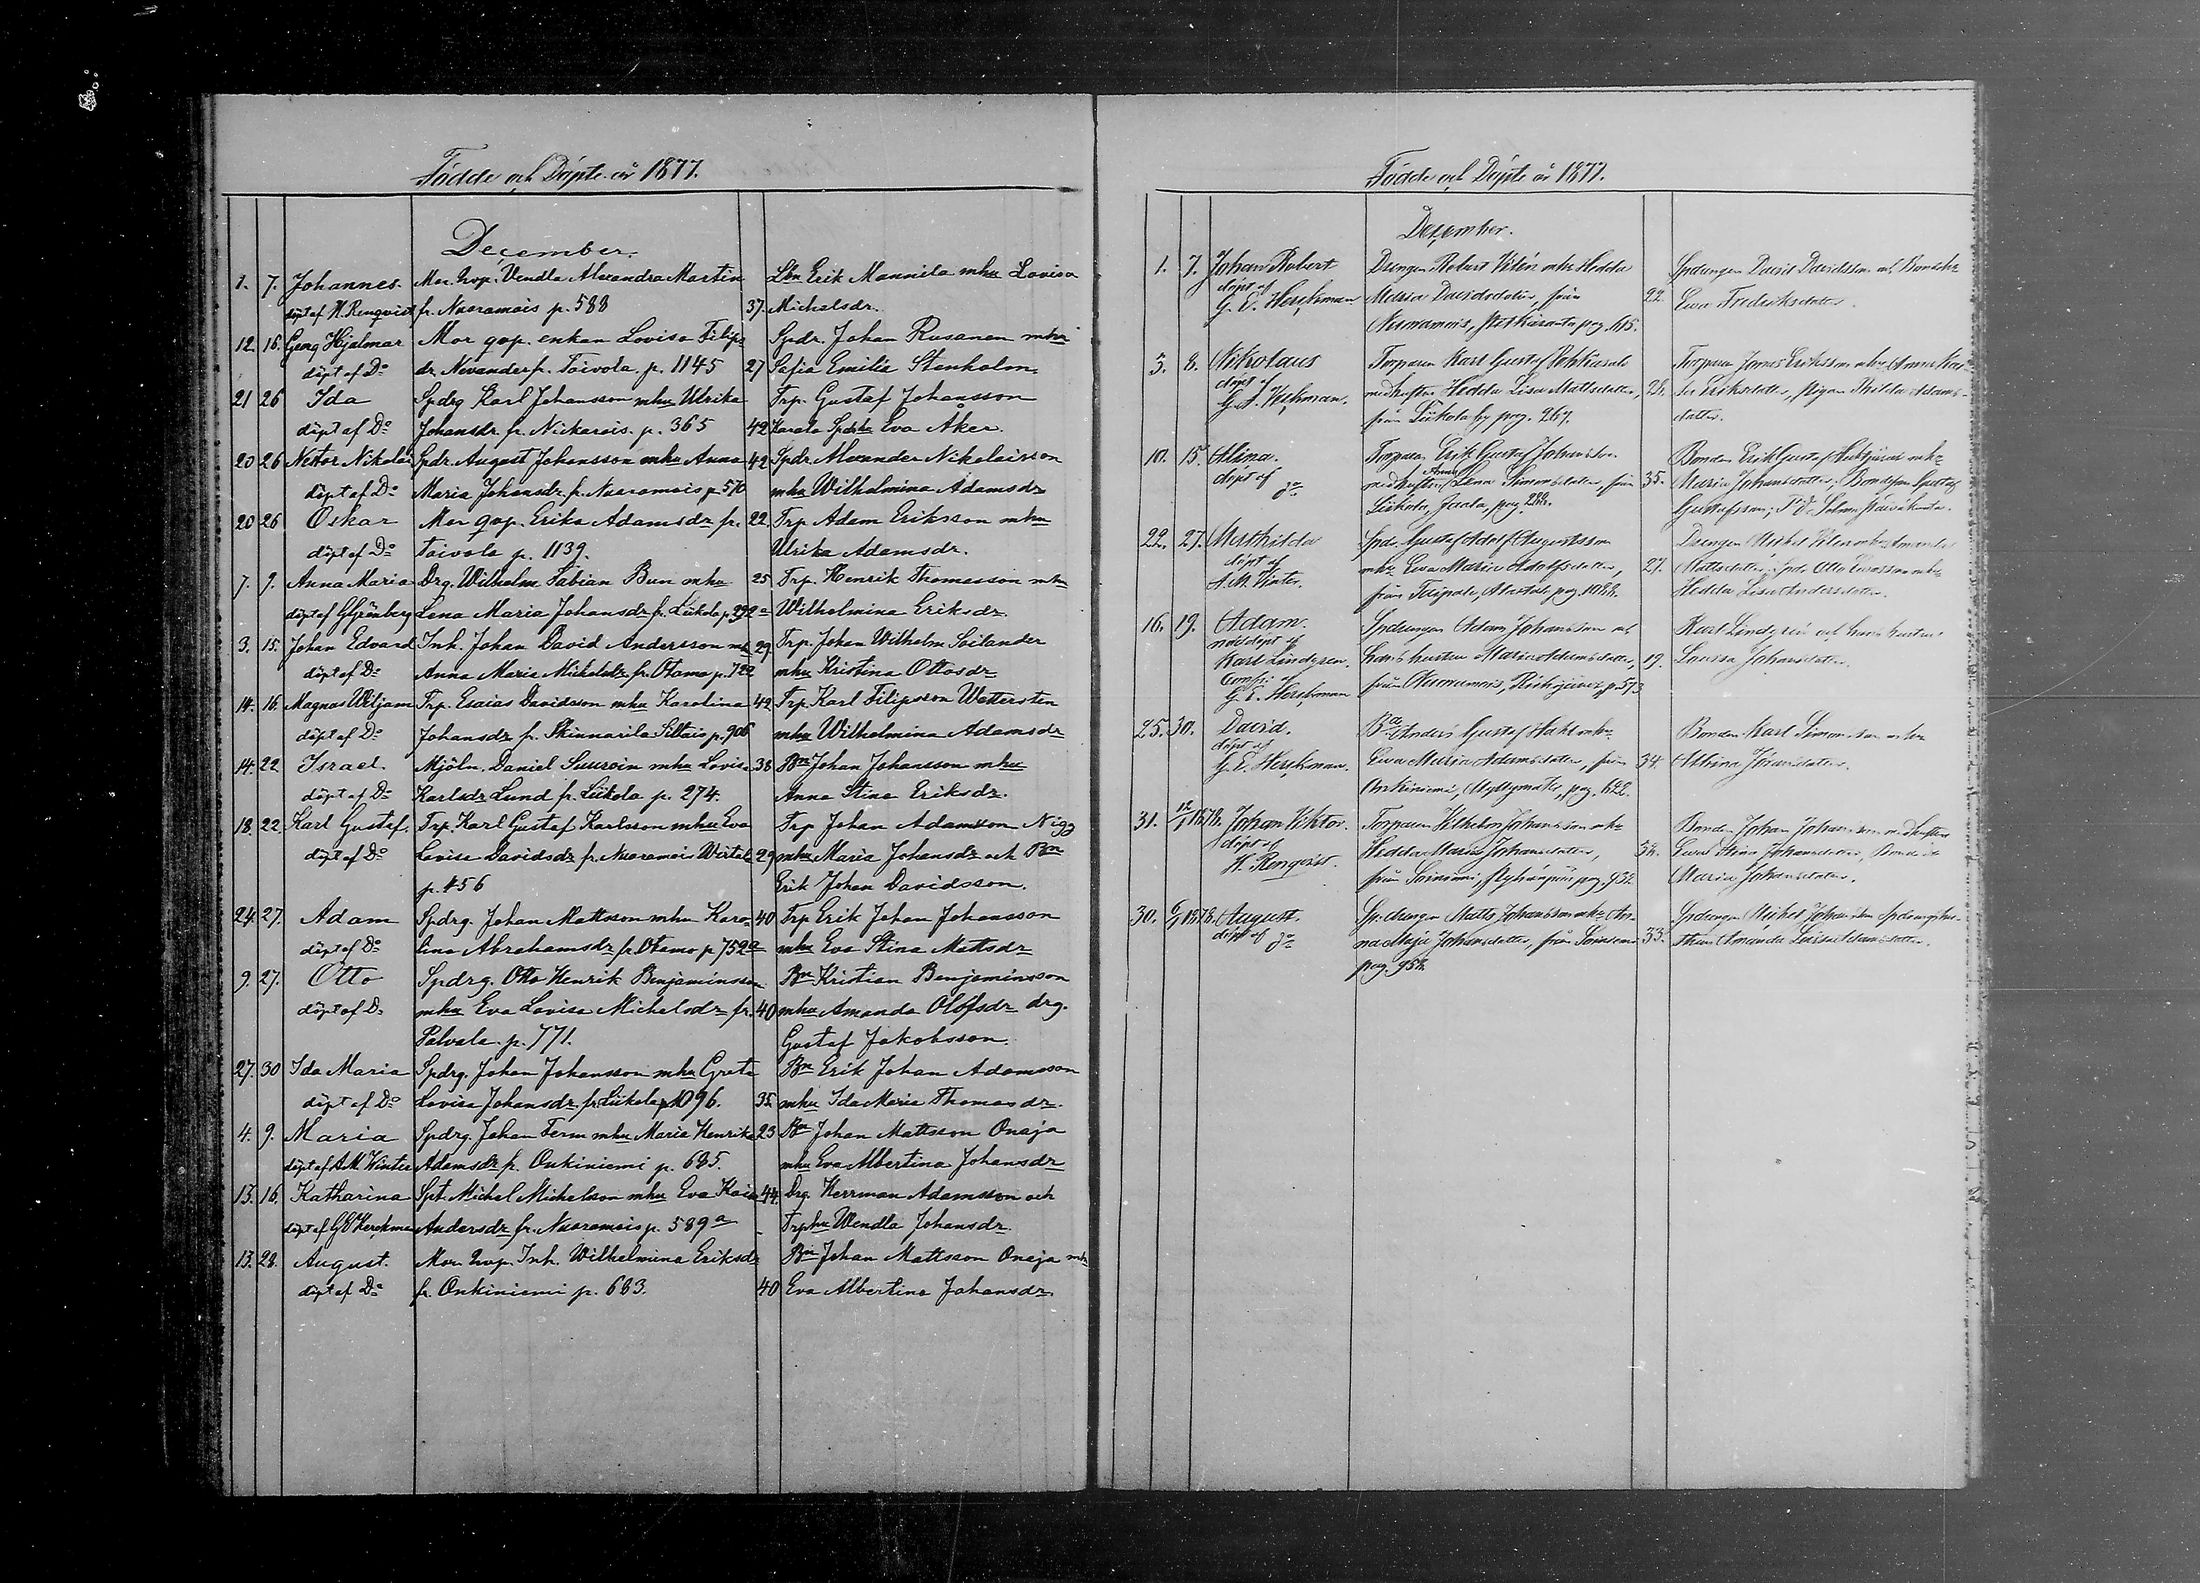 Födde och Döpte år 1877.
December.
1. 7. Johannes. Mor. Inop. Vendla Alexandra Martin Lbn Erik Mannila mhu Lovisa
döpt af H. Renqvist fr. Nuoramois p. 588 37. Michelsdr.
12. 16. Georg Hjalmar Mor qop. enkan Lovisa Filips Spdr. Johan Rusanen mhu
döpt af Do dr. Nevander fr. Toivola p. 1145 27 Sofia Emilia Stenholm
21 26 Ida Spdrg Karl Johansson mhu Ulrika Trp. Gustaf Johansson
döpt af Do Johansdr. fr. Nickarois. p. 365 42 Eva Åker.
20 26 Nestor Nikolai Spdr. August Johansson mhu Anna 42 Spdr. Alexander Nikolaisson
döpt af Do Maria Johansdr. fr. Nuoramois p. 570 mhu Wilhelmina Adamsdr
20 26 Oskar Mor qop. Erika Adamsdr fr. 22. Trp. Adam Eriksson mhu
döpt af Do Toivola p. 1139. Ulrika Adamsdr.
7. 9. Anna Maria Drg. Wilhelm Fabian Bun mhu 25 Trp. Henrik Thomasson mhu
döpt af G Grönberg Lena Maria Johansdr. fr. Liikola p. 292a Wilhelmina Eriksdr
3. 15. Johan Edvard Inh. Johan David Andersson mh 29 Trp. Johan Wilhelm Soilander
döpt af Do Anna Maria Michelsdr fr. Otamo p. 722 mhu Kristina Ottosdr
14. 16. Magnus Wiljam Trp. Esaias Davidsson mhu Karolina 42 Trp. Karl Filipsson Wettersten
döpt af Do Johansdr fr. Skinnarila Siltais p. 906 mhu Wilhelmina Adamsdr
14. 22 Israel Mjöln. Daniel Suuroin mhu Lovisa 38 Bn Johan Johansson mhu
döpt af Do Karlsdr Lund fr. Liikola p. 274. Anna Stina Eriksdr.
18. 22 Karl Gustaf. Trp. Karl Gustaf Karlsson mhu Eva Trp Johan Adamsson Nigg
döpt af Do Lovisa Davidsdr fr. Nuoramois Wirtala 29 mhu Maria Johansdr och Bn
p. 456 Erik Johan Davidsson.
24 27. Adam Spdrg. Johan Mattsson mhu Karo- 40 Trp Erik Johan Johansson
döpt af Do lina Abrahamsdr fr. Otamo p 752a mhu Eva Stina Mattsdr
9. 27. Otto Spdrg. Otto Henrik Benjaminsson Bn Kristian Benjaminsson
döpt af Do mhu Eva Lovisa Michelsdr fr. 40 mhu Amanda Olofsdr drg.
Palvala. p. 771. Gustaf Jakobsson.
27. 30 Ida Maria Spdrg. Johan Johansson mhu Greta Bn Erik Johan Adamsson
döpt af Do Lovisa Johansdr, fr. Liikola p. 1096. 35. mhu Ida Maria Thomasdr.
4. 9. Maria Spdrg. Johan Ferm mhu Maria Henrika 23 Bn Johan Mattsson Onaja
döpt af AM Winter Adamsdr fr. Onkiniemi p. 685. mhu Eva Albertina Johansdr
13. 16. Katharina Spt. Michel Michelsson mhu Eva Kaisa 44. Drg. Herrman Adamsson och
döpt af GE Herckman Andersdr fr. Nuoramois p. 589a Trphu Wendla Johansdr.
13. 28. August. Mor Inop. Inh. Wilhelmina Eriksdr Bn Johan Mattsson Onaja mhu
döpt af Do fr. Onkiniemi p. 683. 40 Eva Albertina Johansdr
Födde och Döpte år 1877.
December.
1. 7. Johan Robert Drengen Robert Vilén mhu Hedda Spdrengen David Davidsson och Bondehu
döpt af
G. E. Herckman Maria Davidsdotter, från 22. Ewa Fredriksdotter.
Nuoramois, pag. 615.
3. 8. Nikolaus Torparen Karl Gustaf Torparen Jonas Eriksson mhu Anna Kai-
döpt af
G. E. Herckman. med hustru Hedda Lisa Mattsdotter, 28. sa Eriksdotter, pigan Adams-
från Liikola by pag. 267. dotter.
10. 15. Alina. Torparen Erik Gustaf Johansson Bonden Erik Gustaf mhu
döpt af do med hustru Anna Lena Simonsdotter, från 35. Maria Johansdotter, Gustaf
Liikola, Jaala, pag. 282. Gustafsson,
22. 27. Mathilda Spdr. Gustaf Adolf Augustsson Drengen Michel Vilen mhu Amanda
döpt af
A. M. Winter. mhu Ewa Maria Adolfsdotter, 27. Mattsdotter, Spdr. Otto mhu
från pag. 1022. Hedda Lisa Andersdotter.
16. 19. Adam. Spdrengen Adam Johansson och Karl Lindgren och hans hustru
nöddöpt af
Karl Lindgren. hans hustru Maria Adamsdotter, 19. Lovisa Johansdotter.
Conf. af
G. E. Herckman från Nuoramois, p. 573
25. 30. David. Ba Anders Gustaf mhu Bonden Karl Simonsson mhu
döpt af
G. E. Herckman. Ewa Maria Adamsdotter, från 34. Albina Johansdotter.
Onkiniemi, pag. 622.
31. 12/1 1878. Johan Viktor. Torparen Wilhelm Johansson mhu Bonden Johan Johansson med hustru
döpt af
H. Renqvist. Hedda Maria Johansdotter, Ewa Stina Johansdotter,
från pag. 932 Maria Johansdotter.
30. 6/1 1878. August. Spdrengen Matts Johansson mhu An- Spdrengen Michel Johansson
döpt af do na Maja Johansdotter, från 33. Amanda Lovisa Adamsdotter.
pag. 952.